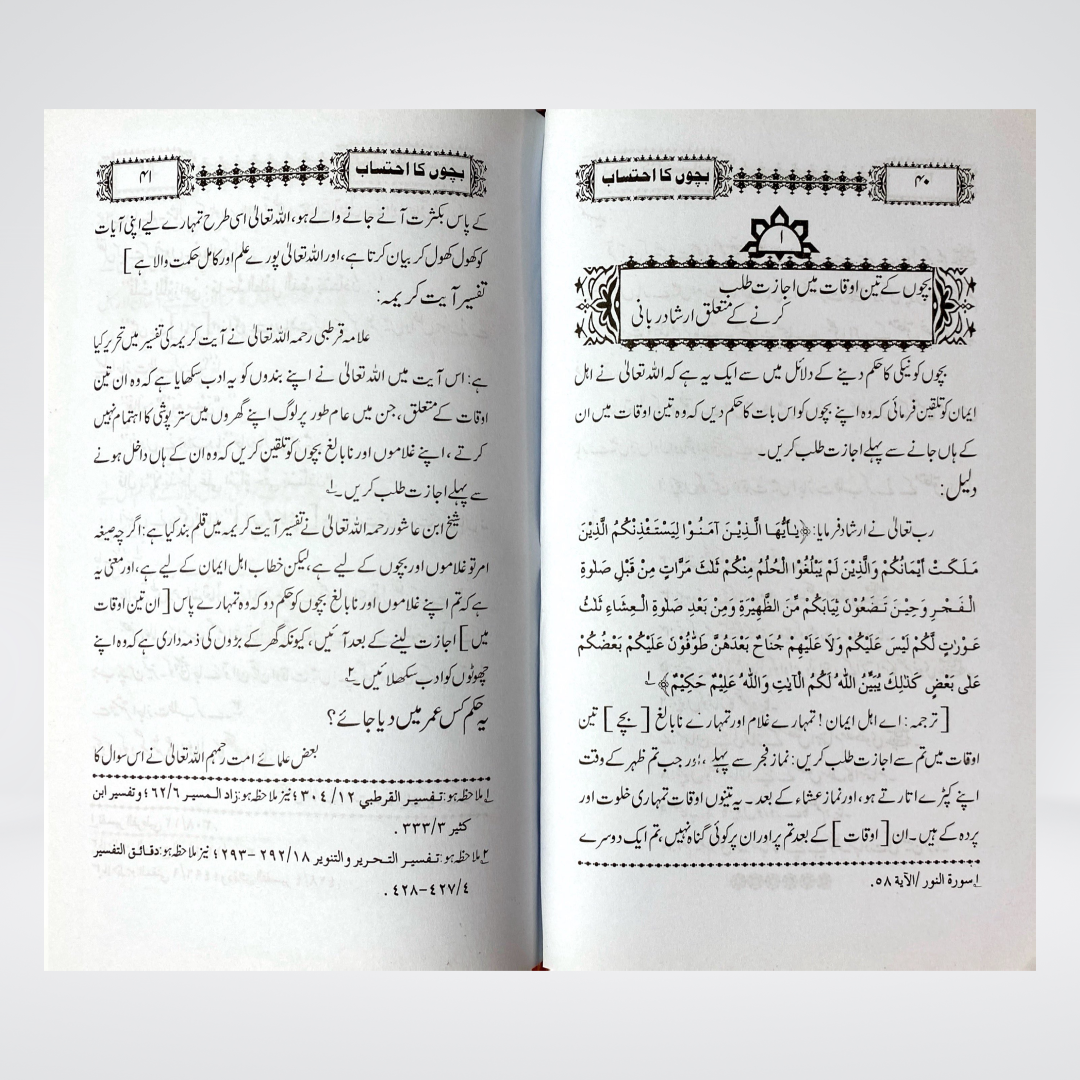 ۴۰
بچوں کا احتساب
۱
بچوں کے تین اوقات میں اجازت طلب
کرنے کے متعلق ارشاد ربانی
بچوں کو نیکی کا حکم دینے کے دلائل میں سے ایک یہ ہے کہ اللہ تعالیٰ نے اہل
ایمان کو تلقین فرمائی کہ وہ اپنے بچوں کو اس بات کا حکم دیں کہ وہ تین اوقات میں ان
کے ہاں جانے سے پہلے اجازت طلب کریں۔
دلیل:
رب تعالیٰ نے ارشاد فرمایا: ﴿يٰۤاَيُّهَا الَّذِيْنَ آمَنُوْا لِيَسْتَئْذِنْكُمُ الَّذِيْنَ
مَلَكَتْ أَيْمَانُكُمْ وَالَّذِيْنَ لَمْ يَبْلُغُوا الْحُلُمَ مِنْكُمْ ثَلٰثَ مَرَّاتٍ مِنْ قَبْلِ صَلٰوةِ
الْفَجْرِ وَحِيْنَ تَضَعُوْنَ ثِيَابَكُمْ مِّنَ الظَّهِيْرَةِ وَمِنْ بَعْدِ صَلٰوةِ الْعِشَاءِ ثَلٰثُ
عَوْرٰتٍ لَّكُمْ لَيْسَ عَلَيْكُمْ وَلَا عَلَيْهِمْ جُنَاحٌ بَعْدَهُنَّ طَوّٰفُوْنَ عَلَيْكُمْ بَعْضُكُمْ
عَلٰى بَعْضٍ كَذٰلِكَ يُبَيِّنُ اللّٰهُ لَكُمُ الْآيٰتِ وَاللّٰهُ عَلِيْمٌ حَكِيْمٌ﴾ ۱
[ترجمہ: اے اہل ایمان! تمہارے غلام اور تمہارے نابالغ [بچے] تین
اوقات میں تم سے اجازت طلب کریں: نماز فجر سے پہلے، اور جب تم ظہر کے وقت
اپنے کپڑے اتارتے ہو، اور نماز عشاء کے بعد۔ یہ تینوں اوقات تمہاری خلوت اور
پردہ کے ہیں۔ ان [اوقات] کے بعد تم پر اور ان پر کوئی گناہ نہیں، تم ایک دوسرے
۱ سورة النور/الآية ۵۸.
بچوں کا احتساب
۴۱
کے پاس بکثرت آنے جانے والے ہو، اللہ تعالیٰ اسی طرح تمہارے لیے اپنی آیات
کو کھول کھول کر بیان کرتا ہے، اور اللہ تعالیٰ پورے علم اور کامل حکمت والا ہے]
تفسیر آیت کریمہ:
علامہ قرطبی رحمہ اللہ تعالیٰ نے آیت کریمہ کی تفسیر میں تحریر کیا
ہے: اس آیت میں اللہ تعالیٰ نے اپنے بندوں کو یہ ادب سکھایا ہے کہ وہ ان تین
اوقات کے متعلق، جن میں عام طور پر لوگ اپنے گھروں میں ستر پوشی کا اہتمام نہیں
کرتے، اپنے غلاموں اور نابالغ بچوں کو تلقین کریں کہ وہ ان کے ہاں داخل ہونے
سے پہلے اجازت طلب کریں۔ ۱
شیخ ابن عاشور رحمہ اللہ تعالیٰ نے تفسیر آیت کریمہ میں قلم بند کیا ہے: اگر چہ صیغہ
امر تو غلاموں اور بچوں کے لیے ہے، لیکن خطاب اہل ایمان کے لیے ہے، اور معنی یہ
ہے کہ تم اپنے غلاموں اور نابالغ بچوں کو حکم دو کہ وہ تمہارے پاس [ان تین اوقات
میں] اجازت لینے کے بعد آئیں، کیونکہ گھر کے بڑوں کی ذمہ داری ہے کہ وہ اپنے
چھوٹوں کو ادب سکھلائیں۔ ۲
یہ حکم کس عمر میں دیا جائے؟
بعض علمائے امت رحمہم اللہ تعالیٰ نے اس سوال کا
۱ ملاحظہ ہو: تفسير القرطبي ۳۰۴/۱۲؛ نیز ملاحظہ ہو: زاد المسير ۶۲/۶؛ وتفسير ابن
كثير ۳۳۳/۳.
۲ ملاحظہ ہو: تفسير التحرير والتنوير ۲۹۲/۱۸-۲۹۳؛ نیز ملاحظہ ہو: دقائق التفسير
۴۲۷/۴-۴۲۸.